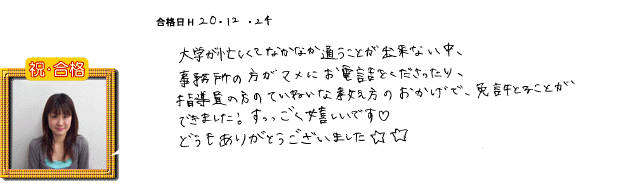 合格日H20.12.24
大学が忙しくてなかなか通うことが出来ない中、
祝・合格
事務所の方がマメにお電話をくださったり、
指導員の方のていねいな教え方のおかげで、免許とることが
できました!すっっごく嬉しいです♡
どうもありがとうございました☆☆